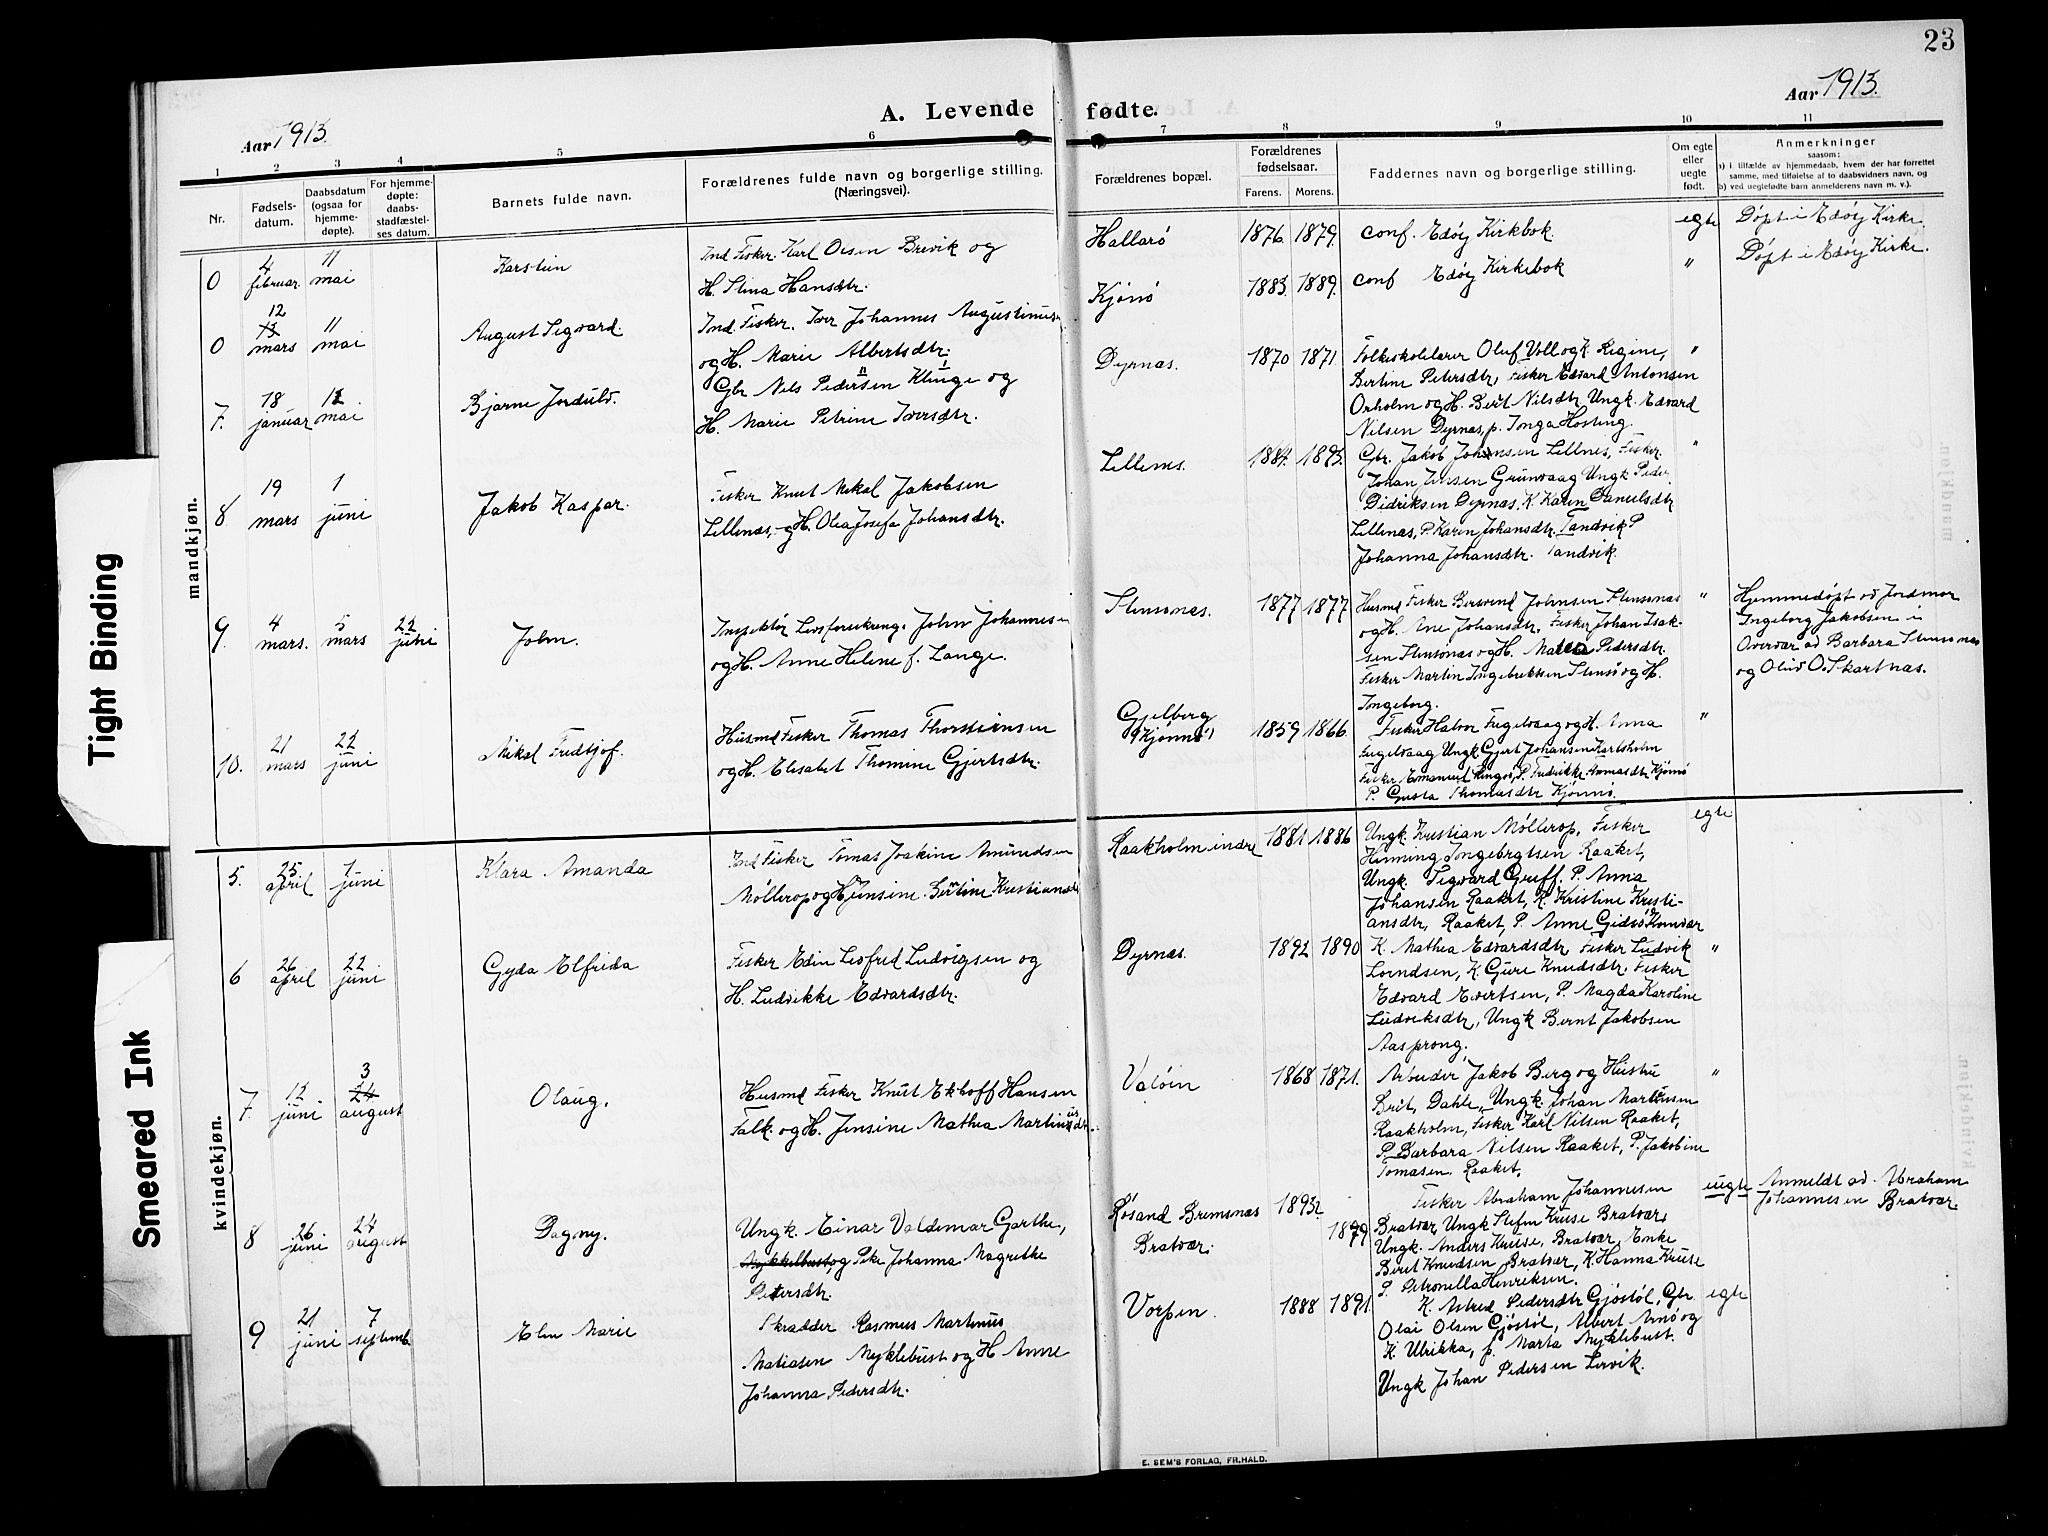 23
A. Levende fødte.
Aar 1913.
Aar 1913.
1 2 3 4 5 6 7 8 9 10 11
Nr.
Fødsels-
datum.
Daabsdatum
(ogsaa for
hjemme-
døpte).
For hjemme-
døpte:
daabs-
stadfæstel-
ses datum.
Barnets fulde navn.
Forældrenes fulde navn og borgerlige stilling.
(Næringsvei).
Forældrenes bopæl.
Forældrenes
fødselsaar.
Farens. Morens.
Faddernes navn og borgerlige stilling.
Om egte
eller
uegte
født.
Anmerkninger
saasom:
a) i tilfælde av hjemmedaab, hvem der har forrettet
samme, med tilføielse af to daabsvidners navn, og
b) ved uegtefødte barn anmelderens navn m. v.).
mandkjøn.
0
4 februar.
11 mai
Karstein
Ind. Fisker. Karl Olsen Brevik og
H. Stina Hansdtr.
Hallarö
1876. 1879.
conf. Edöy Kirkbok.
egte
Döpt i Edöy Kirke.
0
12 mars
11 mai
August Sigvard.
Ind. Fisker. Iver Johannes Augustinus
og H. Marie Albertsdtr.
Kjönö
1883. 1889.
conf Edöy Kirkebok
"
Döpt i Edöy Kirke.
7.
18 januar
mai
Bjarne Jordulv.
Gbr Nels Pedersen Klinge og
H. Marie Petrine Iversdtr.
Dyrnas.
1870 1871.
Folkeskolelærer Oluf Voll og K. Regine,
Bertine Petersdtr, Fisker Edvard Antonsen
Orholm og H. Berit Nilsdtr. Ungk. Edvard
Nilsen Dyrnas, p. Inga Hosting.
"
8
19 mars
1 juni
Jakob Kaspar.
Fisker Knut Mikal Jakobsen
Lillenas, og H. Olea Josefa Johansdtr.
Lillenas.
1884. 1893.
Gbr. Jakob Johansen Lillnes, Fisker
Johan Jensen Grunvaag Ungk Peder
Didriksen Dyrnas, K. Karen Danielsdtr
Lillenas, P. Karen Johansdtr. Tandvik P
Johanna Johansdtr. Tandvik.
"
9.
4 mars.
5 mars
22 juni
John.
Inspektör Livsforsikring. John Johannesen
og H. Anne Helene f. Lange.
Stensönas.
1877 1877
Husmd Fisker Bersvend Johnsen Stensönas
og H. Ane Johansdtr. Fisker Johan Isak-
sen Stensönas og H. Matea Pedersdtr.
Fisker Martin Ingebrektsen Stensö og H.
Ingeborg.
"
Hjemmedöpt av Jordmor
Ingeborg Jakobsen i
Overvær av Barbara Stensönas
og Oliv O. Skartnas.
10.
21 mars
22 juni
Mikal Fredtjof.
Husmd Fisker Thomas Thorsteinsen
og H. Elisabet Thomine Gjertsdtr.
Gjelberg
(Kjönnö)
1859 1866.
Fisker Halvor Fugelvaag og H. Anna
Fugelvaag Ungk. Gjert Johansen Karlsholm
Fisker Emanuel Ringö, P. Fredrikke Tomasdtr Kjönnö
P. Gusta Thomasdtr Kjönnö.
"
kvindekjøn.
5.
25. april
1. juni
Klara Amanda
Ind Fisker Tomas Joakim Amundsen
Möllerop og H. Jensine Bertine Kristiansdtr
Raakholm indre
1881 1886
Ungk. Kristian Möllerop, Fisker
Henning Ingebrgtsen Raaket,
Ungk. Sigvard Greff. P. Anna
Johansen Raaket, K. Kristine Kristi-
ansdtr, Raaket, P. Anne
egte
6
26 april
22 juni
Gyda Elfrida
Fisker Edin Leofred Ludvigsen og
H. Ludvikke Edvardsdtr.
Dyrnas.
1892 1890
K. Mathea Edvardsdtr, Fisker Ludvik
Lorndsen, K. Gure Knudsdtr. Fisker
Edvard Evertsen, P. Magda Karoline
Ludviksdtr, Ungk Bernt Jakobsen
Aasprong.
"
7.
12 juni
3 24 august
Olaug.
Husmd Fisker Knut Ekhoff Hansen
Falk. og H. Jensine Mathea Martinusdtr.
Valöin
1868 1871.
Arbeider Jakob Berg og Hustru
Brit, Dahle, Ungk. Johan Martensen
Raakholm, Fisker Karl Nilsen Raaket,
P. Barbara Nilsen Raaket, P. Jakobine
Tomasen. Raaket,
"
8
26. juni
24 august
Dagny.
Ungk. Einar Valdemar Garthe,
Mykkelbust, og Pike Johanna Magrethe
Petersdtr.
Rösand Bremsnas
Bratvær.
1893.
1879
Fisker Abraham Johannesen
Bratvær, Ungk Stefen Kruse Bratvær,
Ungk. Anders Kruse, Bratvær, Enke
Berit Knudsen Bratvær, K. Hanna Kruse
P. Petronella Henriksen.
uegte
Anmeldt av. Abraham
Johannesen Bratvær.
9
21 juni
7 septemb.
Elen Marie
Skrædder Rasmus Martinus
Matiasen Myklebust og H Anne
Johanna Pedersdtr.
Vorpen.
1888 1891.
K. Astred Pedersdtr Gjöstöl, Gbr.
Olai Olsen Gjöstöl, Albert Arnö og
K. Ulrikka, p. Marta Myklebust.
Ungk Johan Pedersen Lervik.
egte
E. SEM'S FORLAG, FR.HALD.
Tight Binding
Smeared Ink